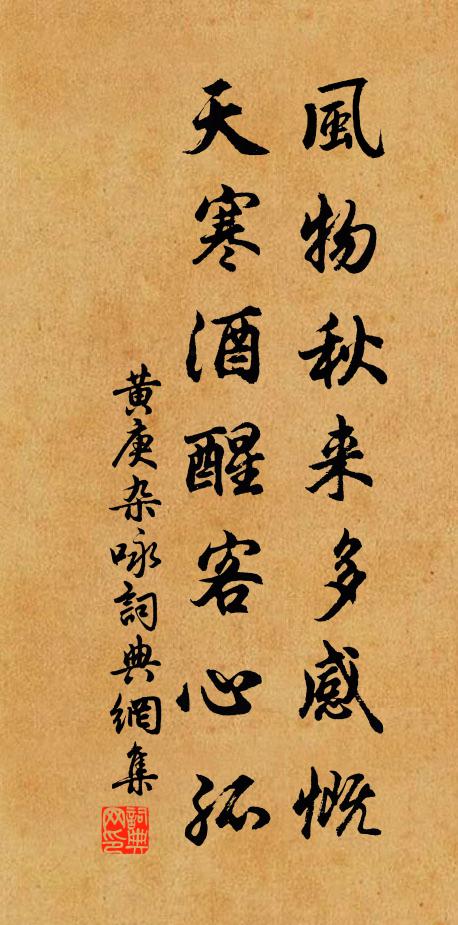 風物秋来多感慨
天寒酒醒客心孤
黄庚杂咏詞典網集
詞典網印